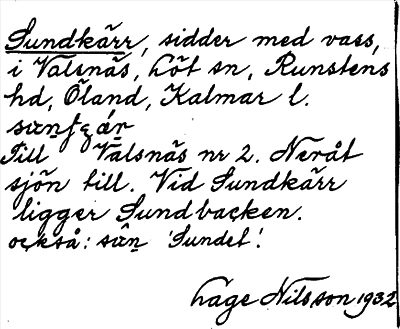 Sundkärr, sidder med vass,
i Valsnäs, Löt sn, Runstens
hd, Öland, Kalmar l.
Till Valsnäs nr 2. Neråt
sjön till. Vid Sundkärr
ligger Sundbacken.
också: 'Sundet'.
Låge Nilsson 1932